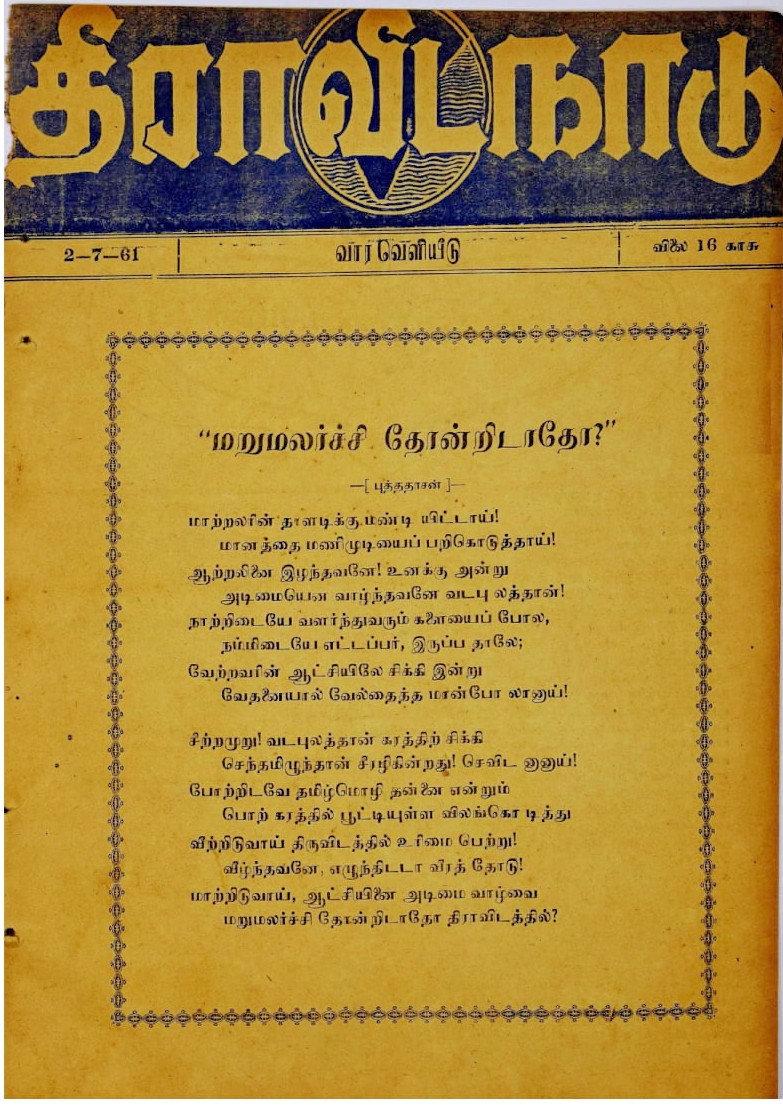 திராவிடநாடு
2—7—61
வார வெளியீடு
விலை 16 காசு
“மறுமலர்ச்சி தோன்றிடாதோ?”
—[ புத்ததாசன் ]—
மாற்றலரின் தாளடிக்கு மண்டி யிட்டாய்!
மானத்தை மணிமுடியைப் பறிகொடுத்தாய்!
ஆற்றலினை இழந்தவனே! உனக்கு அன்று
அடிமையென வாழ்ந்தவனே வடபு லத்தான்!
நாற்றிடையே வளர்ந்துவரும் களையைப் போல,
நம்மிடையே எட்டப்பர், இருப்ப தாலே;
வேற்றவரின் ஆட்சியிலே சிக்கி இன்று
வேதனையால் வேல்தைத்த மான்போ லானாய்!
சீற்றமுறு! வடபுலத்தான் கரத்திற் சிக்கி
செந்தமிழுந்தான் சீரழிகின்றது! செவிட னானாய்!
போற்றிடவே தமிழ்மொழி தன்னை என்றும்
பொற் கரத்தில் பூட்டியுள்ள விலங்கொ டித்து
வீற்றிடுவாய் திருவிடத்தில் உரிமை பெற்று!
வீழ்ந்தவனே, எழுந்திடடா வீரத் தோடு!
மாற்றிடுவாய், ஆட்சியினை அடிமை வாழ்வை
மறுமலர்ச்சி தோன்றிடாதோ திராவிடத்தில்?